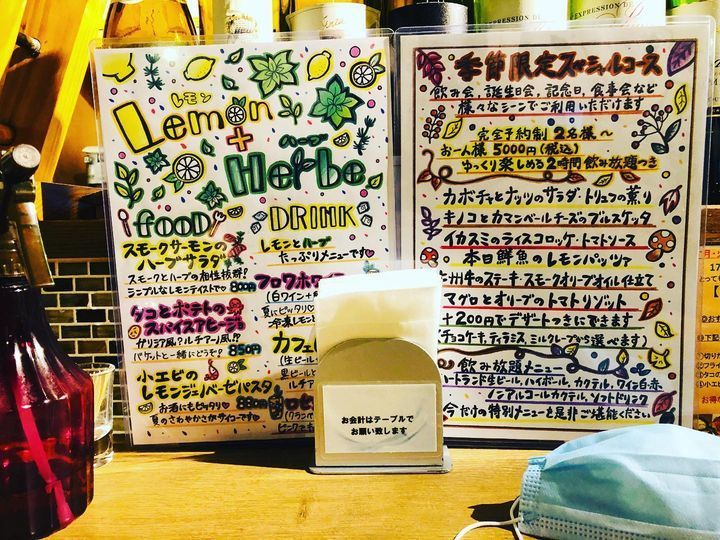 EXPRESSION DE
EXPRESSION DE
レモン
Lemon
+
ハーブ
Herbe
fooD
スモークサーモンの
ハーブサラダ
スモークとハーブの相性抜群!
シンプルなレモンテイストで 800円
タコとポテトの
スパイスアヒージョ
バケットと一緒にどうぞ! 850円
小エビの
レモンジェノベーゼパスタ
お酒にもピッタリ♡ 880円
夏のさわやかさがサイコーです♡
DRINK
レモンとハーブ
たっぷりメニューです♡
フロワホワイ
(白ワイン+
夏にピッタリ♡
冷凍レモン
カフェ
(生ビール
黒ビールと
お会計はテーブルで
お願い致します
季節限定スペシャルコース
飲み会、誕生日会、記念日、食事会など
様々なシーンでご利用いただけます
完全予約制 2名様〜
お一人様 5000円(税込)
ゆっくり楽しめる2時間飲み放題つき
カボチャとナッツのサラダ・トリュフの薫り
キノコとカマンベールチーズのブルスケッタ
イカスミのライスコロッケ・トマトソース
本日鮮魚のレモンパッツァ
州牛のステーキ・スモークオリーブオイル仕立て
マグロとオリーブのトマトリゾット
+200円でデザートつきにできます
チョコケーキ、ティラミス、ミルクレープから選べます)
飲み放題メニュー
ハートランド生ビール、ハイボール、カクテル、ワイン白赤
ノンアルコールカクテル、ソフトドリンク
今だけの特別メニューを是非ご堪能ください